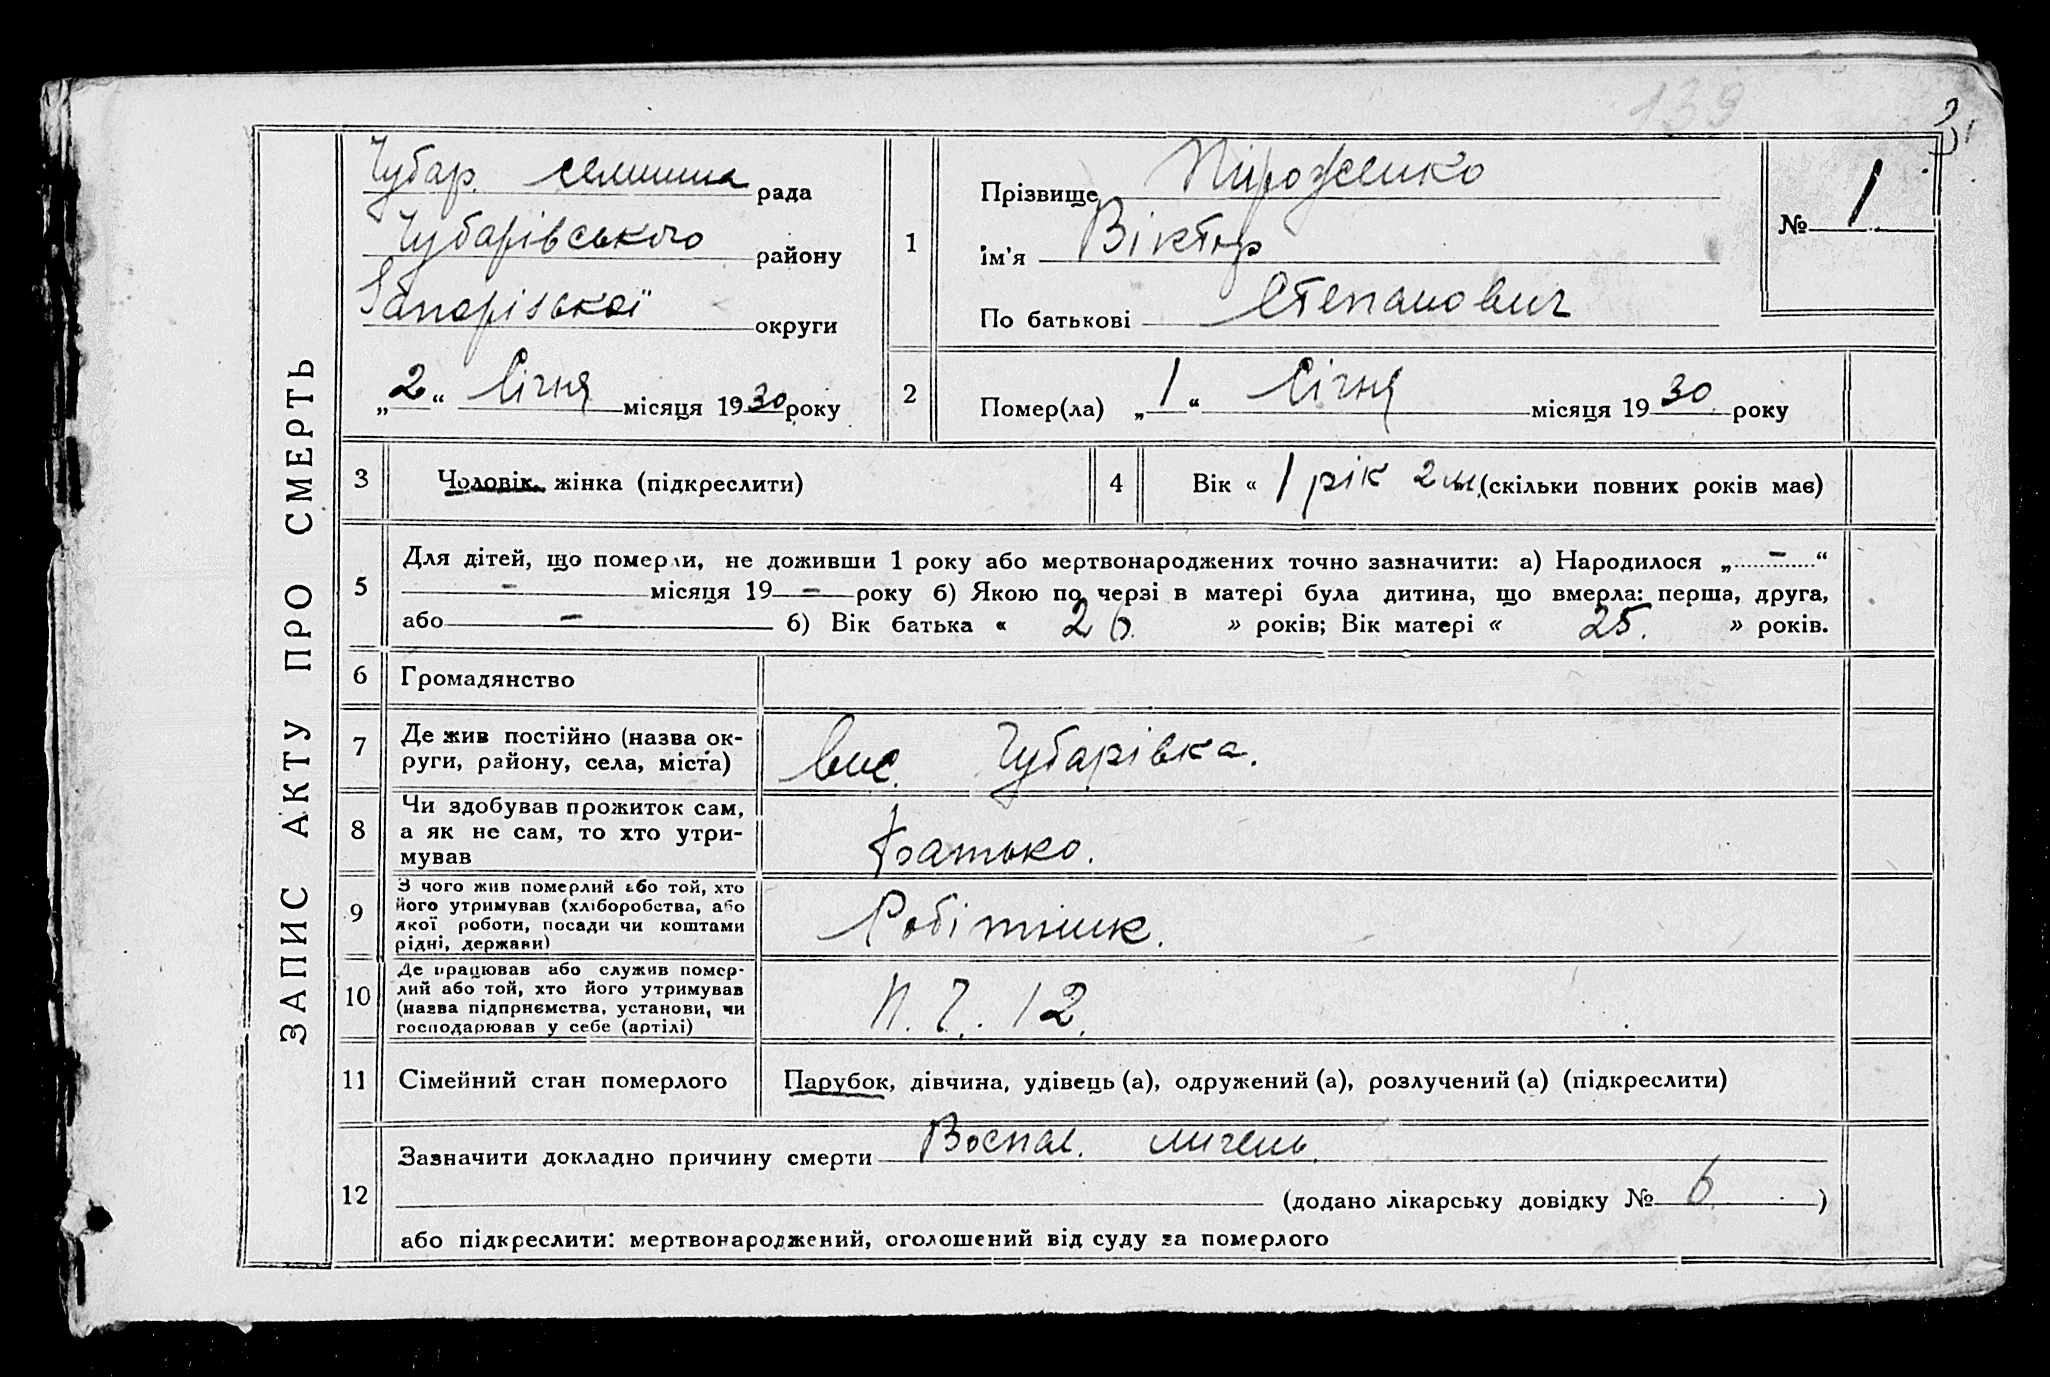 139
3
ЗАПИС АКТУ ПРО СМЕРТЬ
Чубар. селищна рада
Чубарівського району
Запорізької округи
„2“ Січня місяця 1930 року
1
Прізвище Пироженко
ім'я Віктор
По батькові Степанович
№ 1
2
Помер(ла) „1“ Січня місяця 1930 року
3 Чоловік, жінка (підкреслити)
4 Вік « 1 рік 2 м. (скільки повних років має)
5
Для дітей, що померли, не доживши 1 року або мертвонароджених точно зазначити: а) Народилося „ - “
- місяця 19 - року б) Якою по черзі в матері була дитина, що вмерла: перша, друга,
або - б) Вік батька « 26. » років; Вік матері « 25. » років.
6 Громадянство
7 Де жив постійно (назва ок-
руги, району, села, міста)
вис. Чубарівка.
8 Чи здобував прожиток сам,
а як не сам, то хто утри-
мував
Батько.
9 З чого жив померлий або той, хто
його утримував (хліборобства, або
якої роботи, посади чи коштами
рідні, держави)
Робітник.
10 Де працював або служив помер-
лий або той, хто його утримував
(назва підприємства, установи, чи
господарював у себе (артілі)
П. Ч. 12.
11 Сімейний стан померлого
Парубок, дівчина, удівець (а), одружений (а), розлучений (а) (підкреслити)
12
Зазначити докладно причину смерти Воспал. личень.
(додано лікарську довідку № 6. )
або підкреслити: мертвонароджений, оголошений від суду за померлого